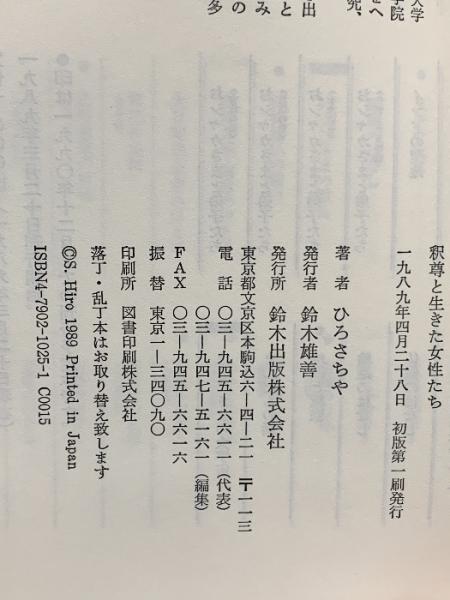 大学
学院
究、
出
と
み
の
多
釈尊と生きた女性たち
一九八九年四月二十八日　初版第一刷発行
著　者　ひろさちや
発行者　鈴木雄善
発行所　鈴木出版株式会社
東京都文京区本駒込六−四−二一　〒一一三
電　話　〇三−九四五−六六一一（代表）
〇三−九四七−五一六一（編集）
ＦＡＸ　〇三−九四五−六六一六
振　替　東京一−三四〇九〇
印刷所　図書印刷株式会社
落丁・乱丁本はお取り替え致します
©S. Hiro 1989 Printed in Japan
ISBN4-7902-1025-1 C0015